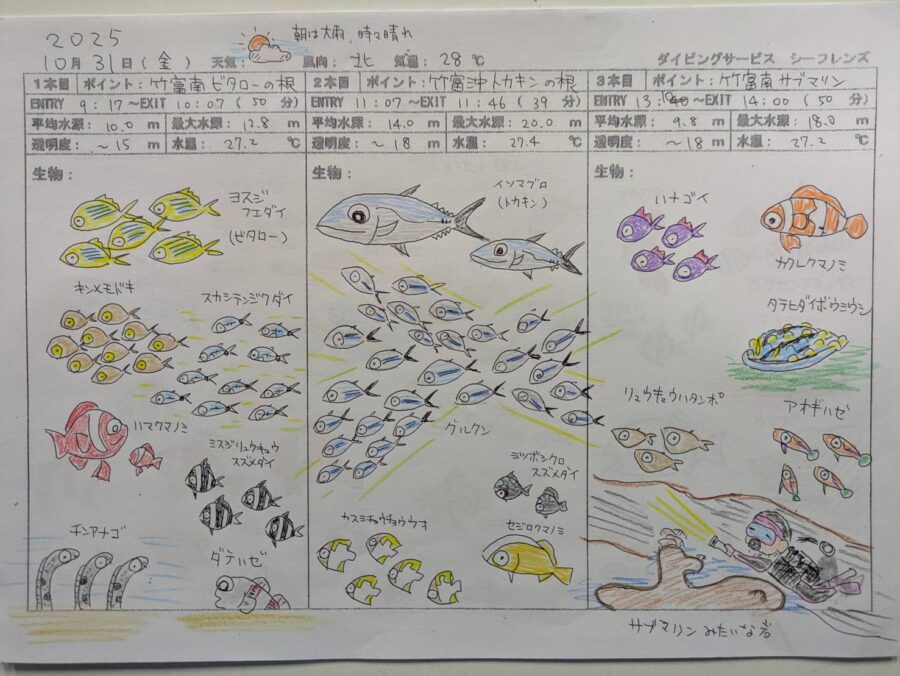 2025
朝は大雨、時々晴れ
10月 31日(金) 天気: 風向: 北 気温: 28 ℃ ダイビングサービス シーフレンズ
1本目 ポイント: 竹富南 ビタローの根
ENTRY 9:17 ~EXIT 10:07 ( 50 分)
平均水深: 10.0 m 最大水深: 12.8 m
透明度: ~15 m 水温: 27.2 ℃
生物:
ヨスジ
フエダイ
(ビタロー)
キンメモドキ
スカシテンジクダイ
ハマクマノミ
ミスジリュウキュウ
スズメダイ
チンアナゴ
ダテハゼ
2本目 ポイント: 竹富沖 トカキンの根
ENTRY 11:07 ~EXIT 11:46 ( 39 分)
平均水深: 14.0 m 最大水深: 20.0 m
透明度: ~18 m 水温: 27.4 ℃
生物:
イソマグロ
(トカキン)
グルクン
ミツボシクロ
スズメダイ
カスミチョウチョウウオ
セジロクマノミ
3本目 ポイント: 竹富南 サブマリン
ENTRY 13:10 ~EXIT 14:00 ( 50 分)
平均水深: 9.8 m 最大水深: 18.0 m
透明度: ~18 m 水温: 27.2 ℃
生物:
ハナゴイ
カクレクマノミ
タテヒダイボウミウシ
リュウキュウハタンポ
アオギハゼ
サブマリン みたいな岩